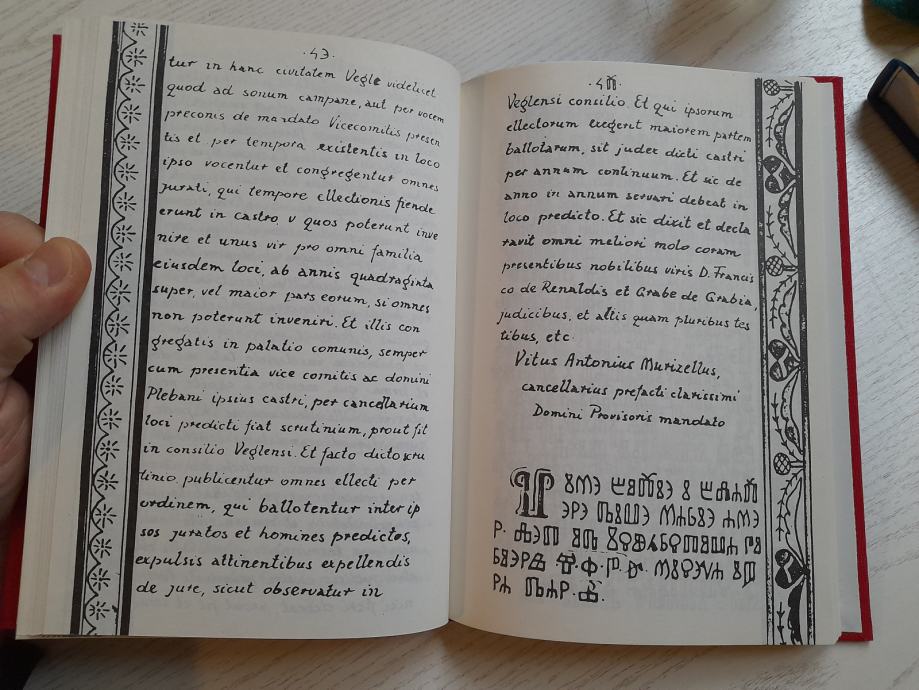 ·43·
tur in hanc civitatem Vegle videlicet
quod ad sonum campane, aut per vocem
preconis de mandato Vicecomitis presen
tis et per tempora existentis in loco
ipso vocentur et congregentur omnes
jurati, qui tempore ellectionis fiende
erunt in castro, v quos poterunt inve
nire et unus vir pro omni familia
eiusdem loci, ab annis quadraginta
super, vel maior pars eorum, si omnes
non poterunt inveniri. Et illis con
gregatis in palatio comunis, semper
cum presentia vice comitis ac domini
Plebani ipsius castri, per cancellarium
loci predicti fiat scrutinium, prout fit
in consilio Veglensi. Et facto dicto scru
tinio, publicentur omnes ellecti per
ordinem, qui ballotentur inter ip
sos juratos et homines predictos,
expulsis attinentibus expellendis
de jure, sicut observatur in
Veglensi consilio. Et qui ipsorum
ellectorum exegerit maiorem partem
ballotarum, sit judex dicti castri
per annum continuum. Et sic de
anno in annum servari debeat in
loco predicto. Et sic dixit et decla
ravit omni meliori molo coram
presentibus nobilibus viris D. Francis
co de Renaldis et Grabe de Grabia,
judicibus, et altis quam pluribus tes
tibus, etc
Vitus Antonius Murizellus,
cancellarius prefacti clarissimi
Domini Provisoris mandato